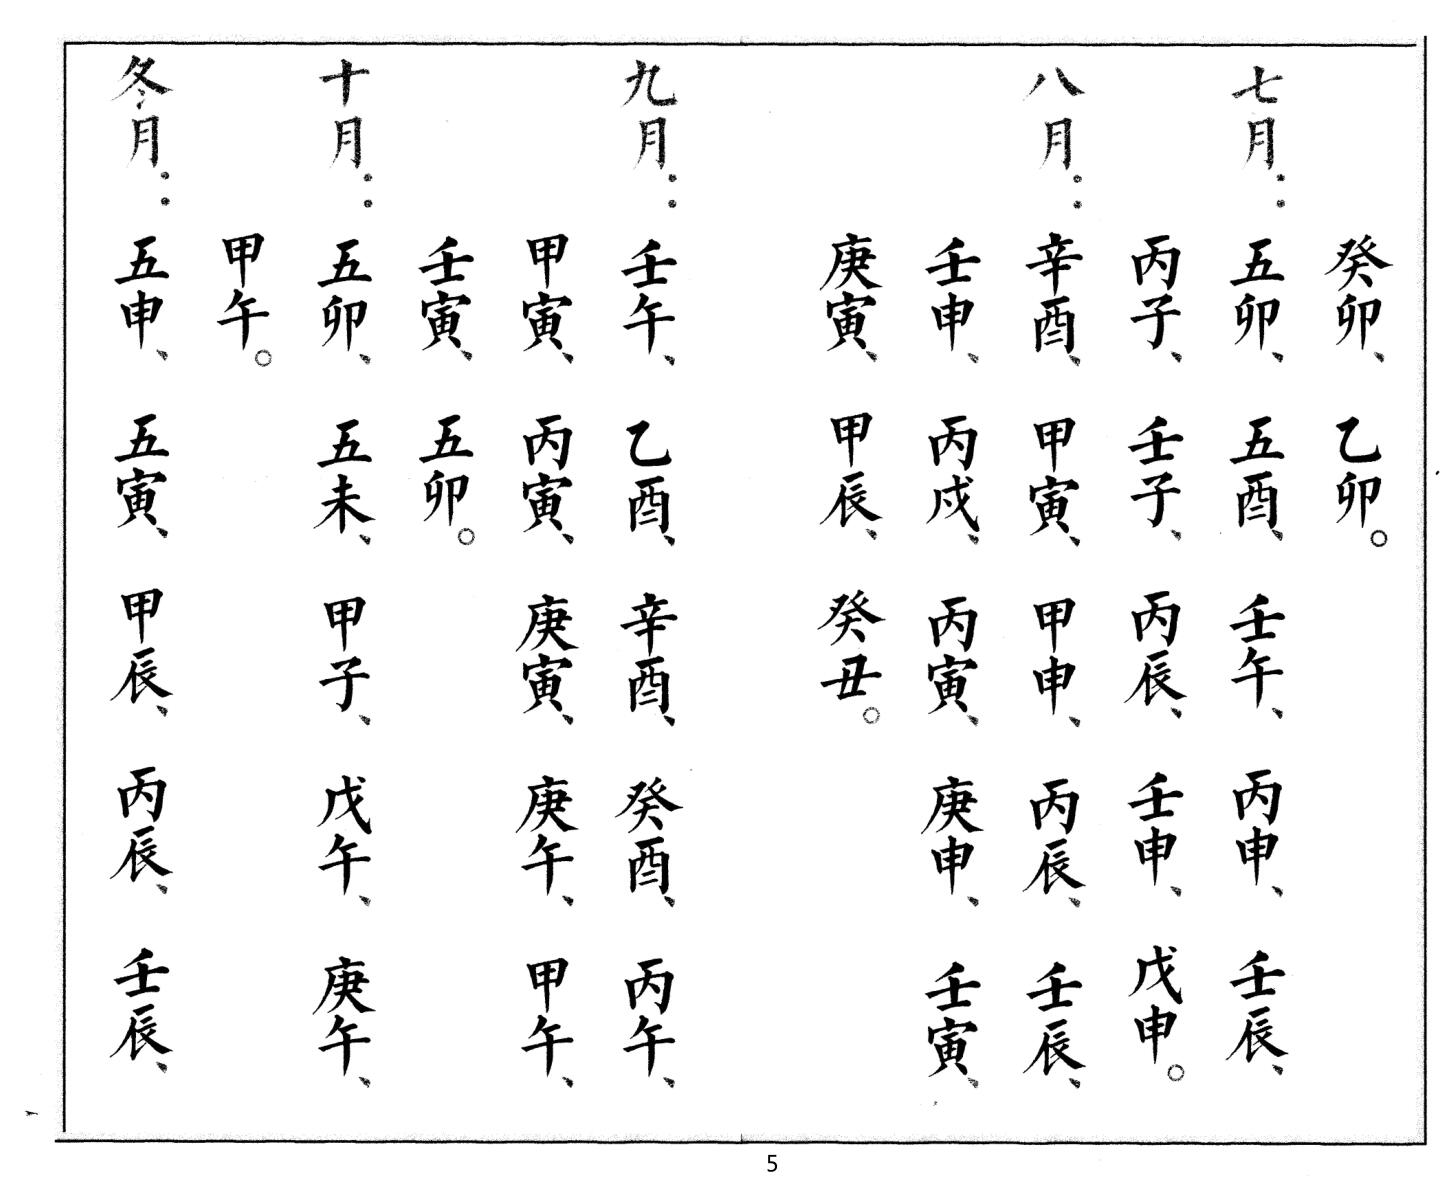 癸卯、乙卯。
七月：五卯、五酉、壬午、丙申、壬辰、
丙子、壬子、丙辰、壬申、戊申。
八月：辛酉、甲寅、甲申、丙辰、壬辰、
壬申、丙戍、丙寅、庚申、壬寅、
庚寅、甲辰、癸丑。
九月：壬午、乙酉、辛酉、癸酉、丙午、
甲寅、丙寅、庚寅、庚午、甲午、
壬寅、五卯。
十月：五卯、五未、甲子、戊午、庚午、
甲午。
冬月：五申、五寅、甲辰、丙辰、壬辰、
5